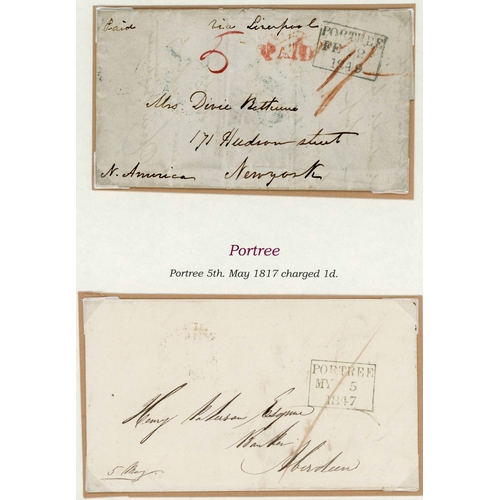 Paid via Liverpool
5 PAID
PORTREE
FE 2
1849
Mrs Divie Bethune
171 Hudson street
N. America Newyork
Portree
Portree 5th. May 1817 charged 1d.
PORTREE
MY 5
1847
Henry Paterson Esquire
Banker
Aberdeen
5 May